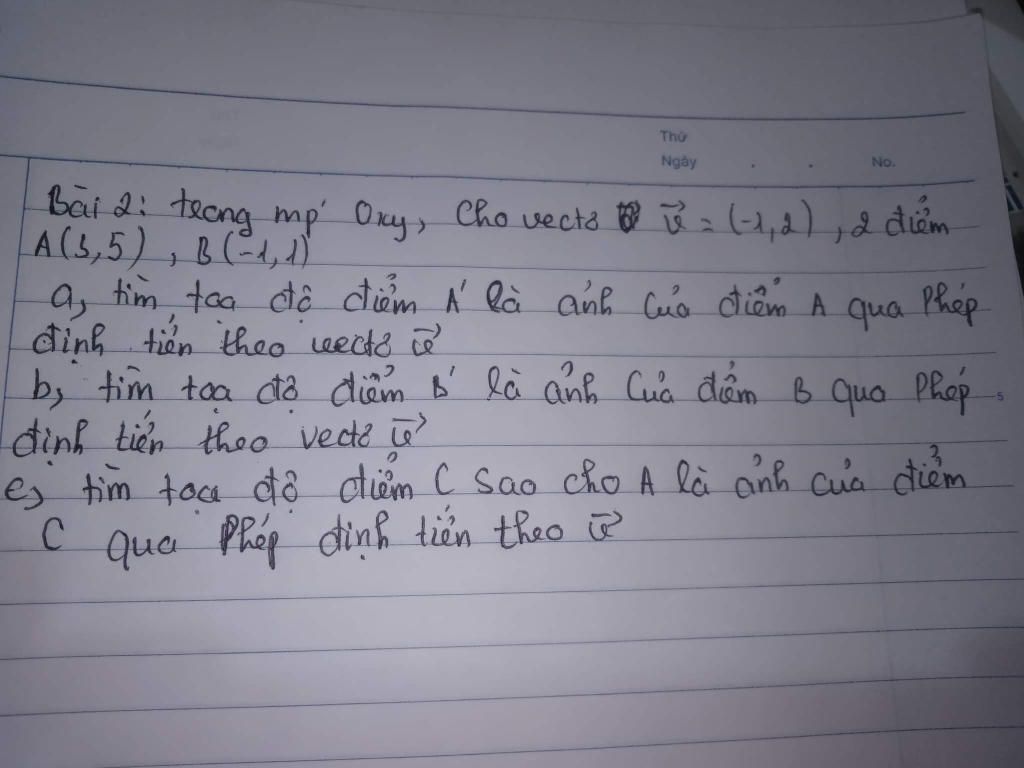 Thứ
Ngày . . No.
Bài 2: trong mp Oxy, Cho vectơ v⃗ = (-1,2), 2 điểm
A(3,5), B(-1,1)
a, tìm tọa độ điểm A' là ảnh của điểm A qua Phép
định tiến theo vectơ v⃗
b, tìm tọa độ điểm B' là ảnh của điểm B qua Phép
định tiến theo vectơ v⃗
c, tìm tọa độ điểm C sao cho A là ảnh của điểm
C qua Phép định tiến theo v⃗
5